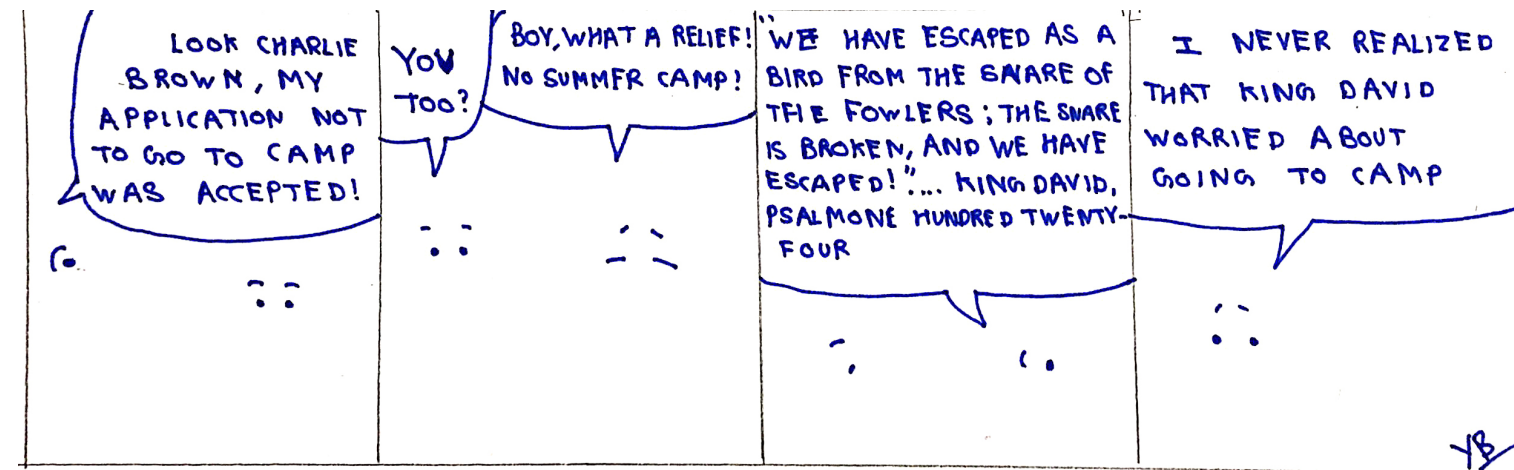 LOOK CHARLIE
BROWN, MY
APPLICATION NOT
TO GO TO CAMP
WAS ACCEPTED!
YOU
TOO?
BOY, WHAT A RELIEF!
NO SUMMER CAMP!
"WE HAVE ESCAPED AS A
BIRD FROM THE SNARE OF
THE FOWLERS; THE SNARE
IS BROKEN, AND WE HAVE
ESCAPED!"... KING DAVID,
PSALM ONE HUNDRED TWENTY-
FOUR
I NEVER REALIZED
THAT KING DAVID
WORRIED ABOUT
GOING TO CAMP
YB